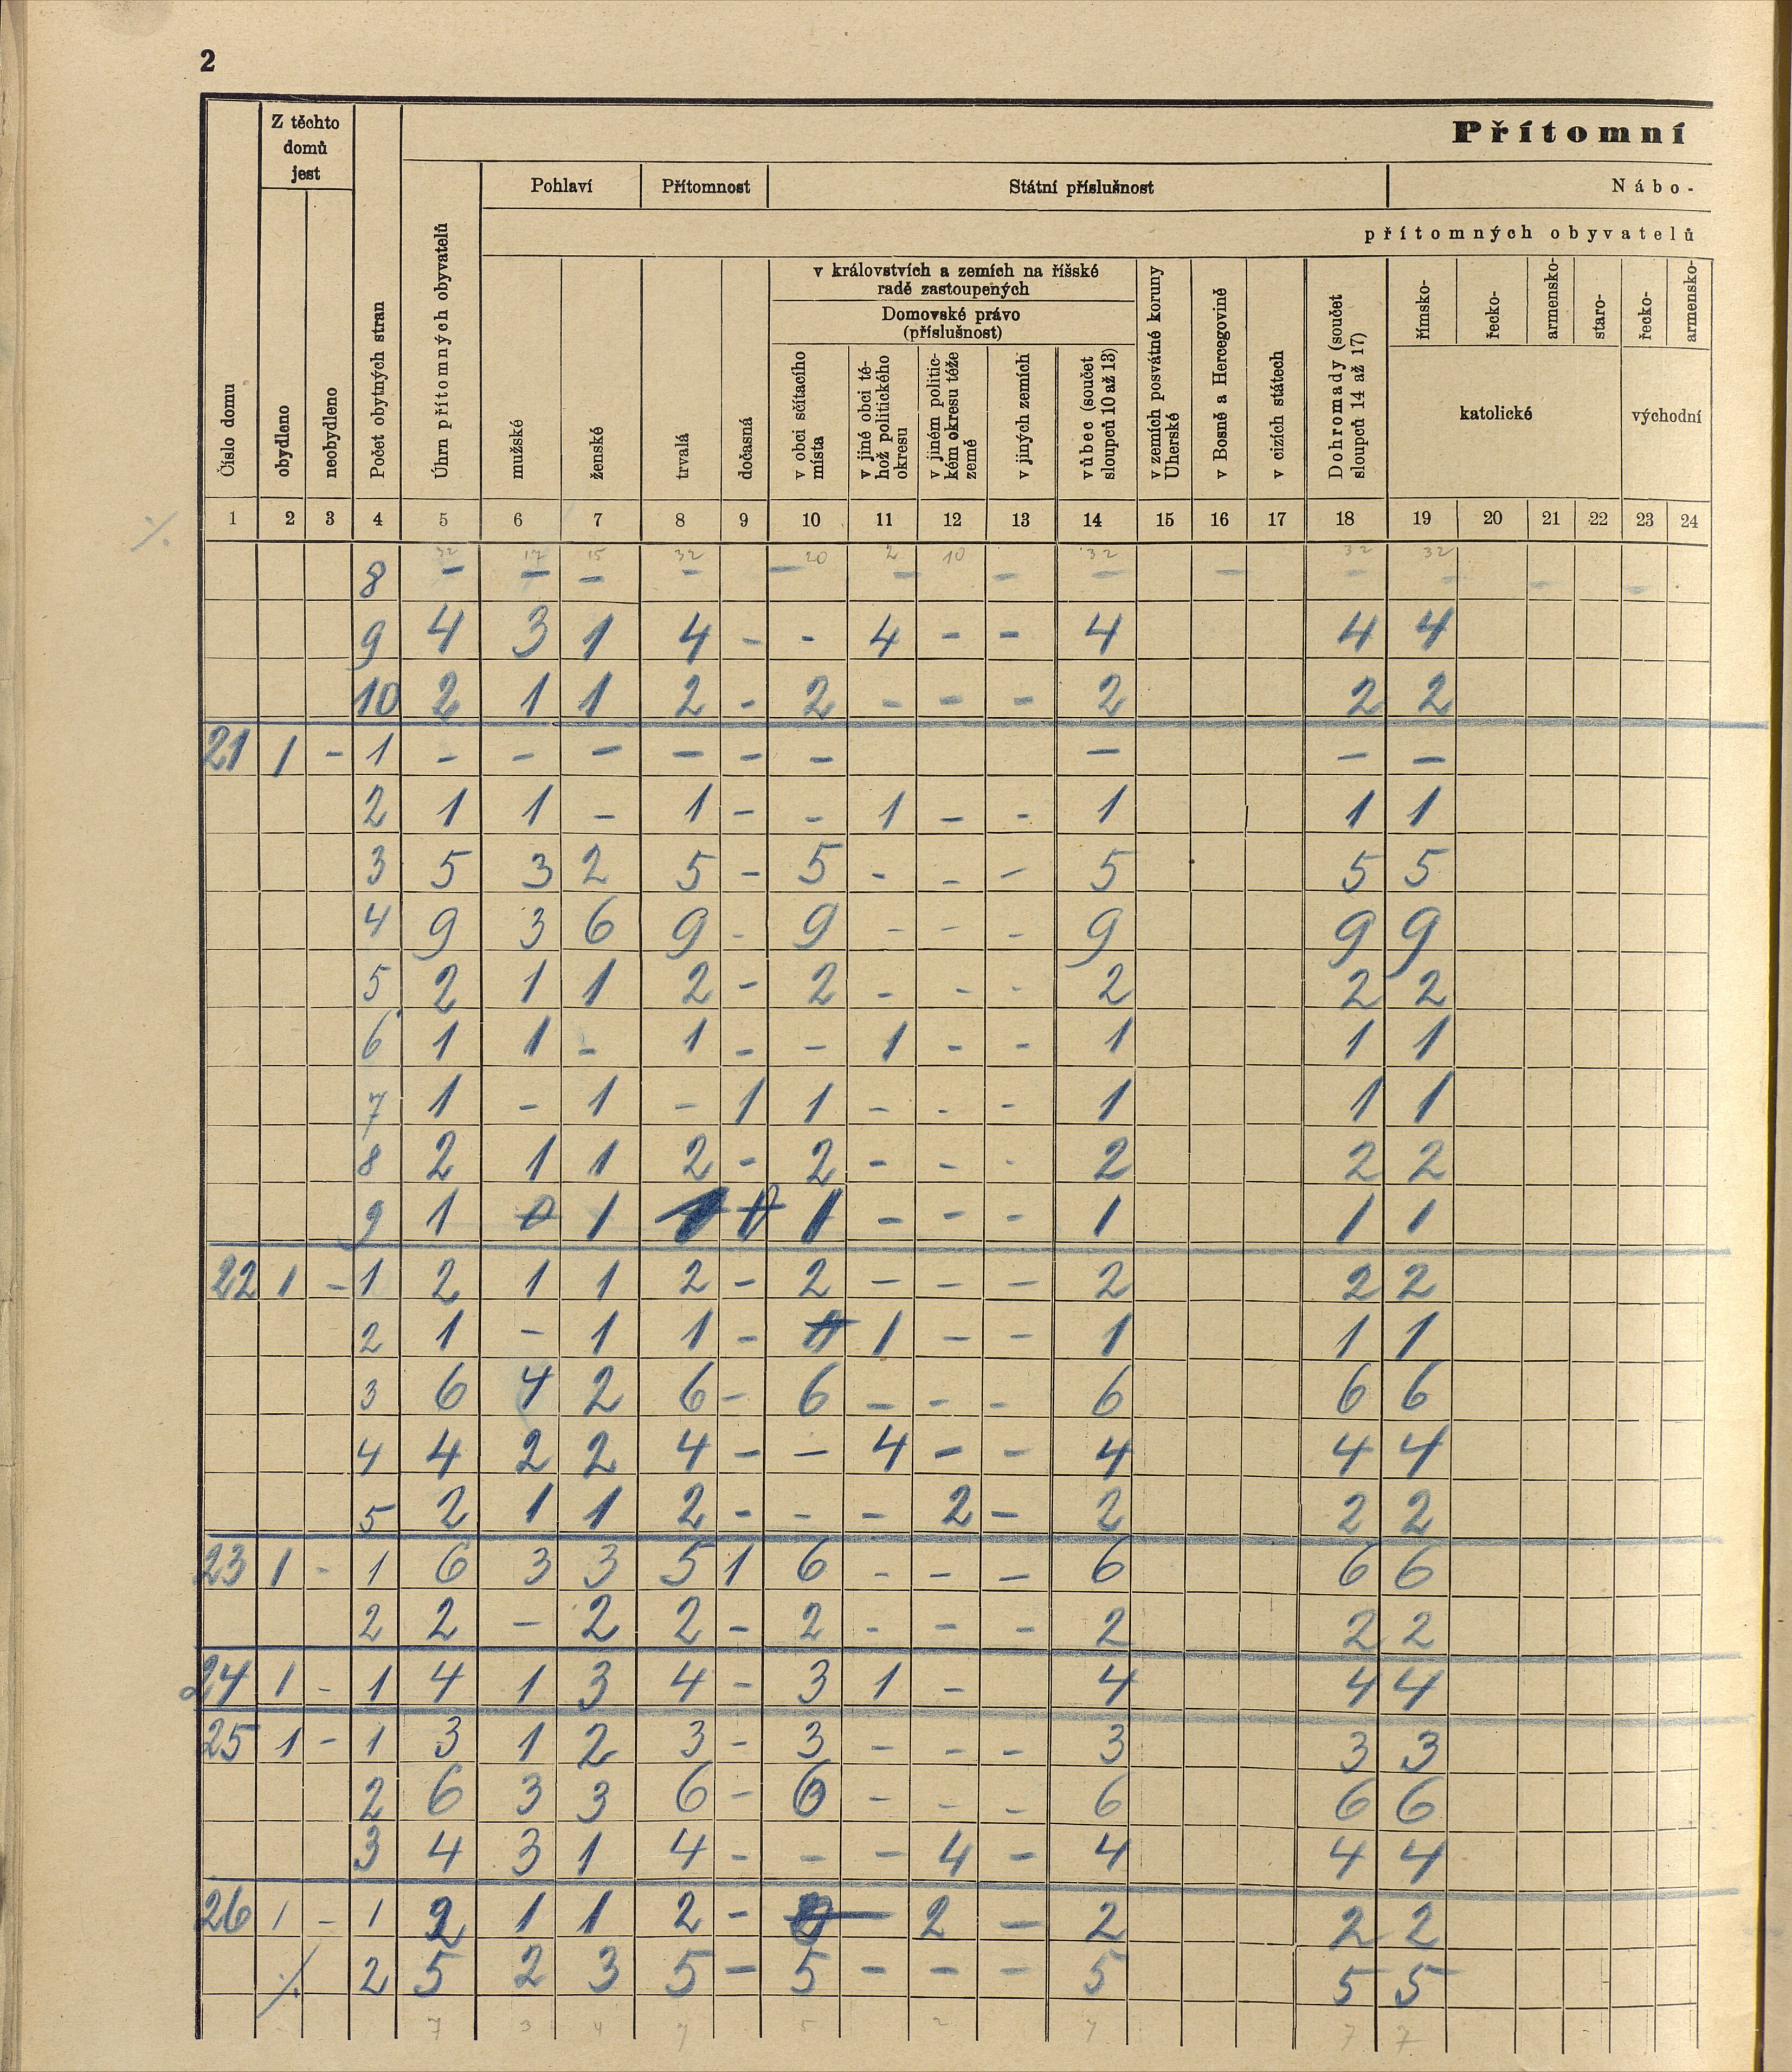 2
Přítomní
Z těchto domů jest
Pohlaví Přítomnost Státní příslušnost Nábo-
přítomných obyvatelů
v královstvích a zemích na říšské
radě zastoupených
Domovské právo
(příslušnost)
Číslo domu
obydleno
neobydleno
Počet obytných stran
Úhrn přítomných obyvatelů
mužské
ženské
trvalá
dočasná
v obci sčítacího místa
v jiné obci téhož politického okresu
v jiném politickém okresu téže země
v jiných zemích
vůbec (součet sloupců 10 až 13)
v zemích posvátné koruny Uherské
v Bosně a Hercegovině
v cizích státech
Dohromady (součet sloupců 14 až 17)
římsko-
řecko-
armensko-
staro-
řecko-
armensko-
katolické východní
1 2 3 4 5 6 7 8 9 10 11 12 13 14 15 16 17 18 19 20 21 22 23 24
32 17 15 32 20 2 10 32 32 32
8 - - - - - - - - - - - - -
9 4 3 1 4 - - 4 - - 4 4 4
10 2 1 1 2 - 2 - - - 2 2 2
21 1 - 1 - - - - - - - - -
2 1 1 - 1 - - 1 - - 1 1 1
3 5 3 2 5 - 5 - - - 5 5 5
4 9 3 6 9 - 9 - - - 9 9 9
5 2 1 1 2 - 2 - - - 2 2 2
6 1 1 - 1 - - 1 - - 1 1 1
7 1 - 1 - 1 1 - - - 1 1 1
8 2 1 1 2 - 2 - - - 2 2 2
9 1 0 1 1 1 - - - 1 1 1
22 1 - 1 2 1 1 2 - 2 - - - 2 2 2
2 1 - 1 1 - 1 - - 1 1 1
3 6 4 2 6 - 6 - - - 6 6 6
4 4 2 2 4 - - 4 - - 4 4 4
5 2 1 1 2 - - - 2 - 2 2 2
23 1 - 1 6 3 3 5 1 6 - - - 6 6 6
2 2 - 2 2 - 2 - - - 2 2 2
24 1 - 1 4 1 3 4 - 3 1 - 4 4 4
25 1 - 1 3 1 2 3 - 3 - - - 3 3 3
2 6 3 3 6 - 6 - - - 6 6 6
3 4 3 1 4 - - - 4 - 4 4 4
26 1 - 1 2 1 1 2 - 2 - 2 2 2
2 5 2 3 5 - 5 - - - 5 5 5
7 3 4 7 5 2 7 7 7